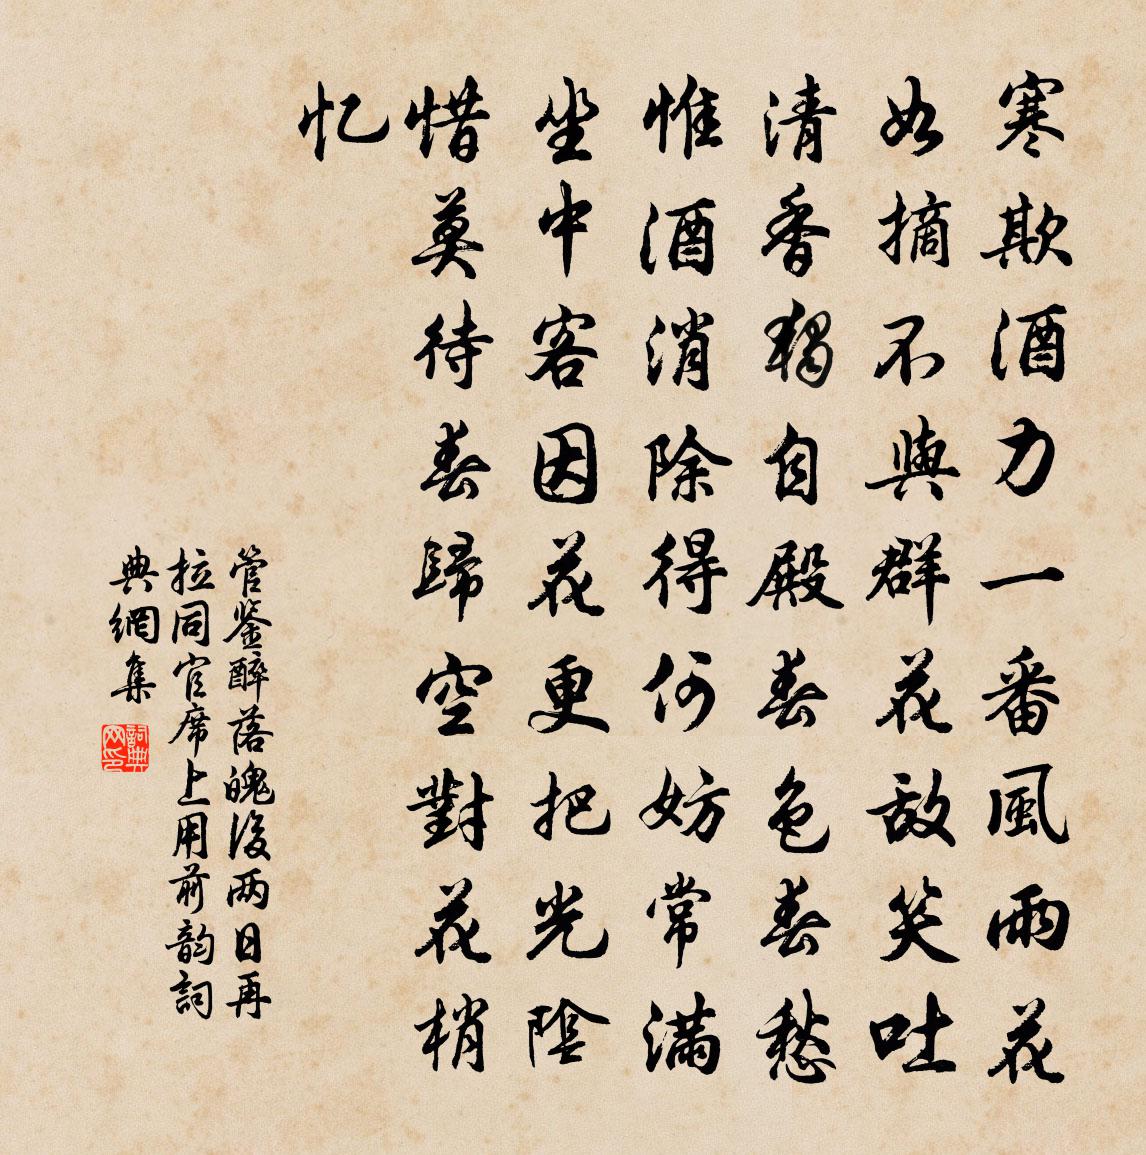 寒欺酒力一番風雨花
如摘不與群花敌笑吐
清香獨自殿春色春愁
惟酒消除得何妨常滿
坐中客因花更把光陰
惜莫待春歸空對花梢
忆
管鉴醉落魄後两日再
拉同官席上用前韵詞
典網集
詞典网印